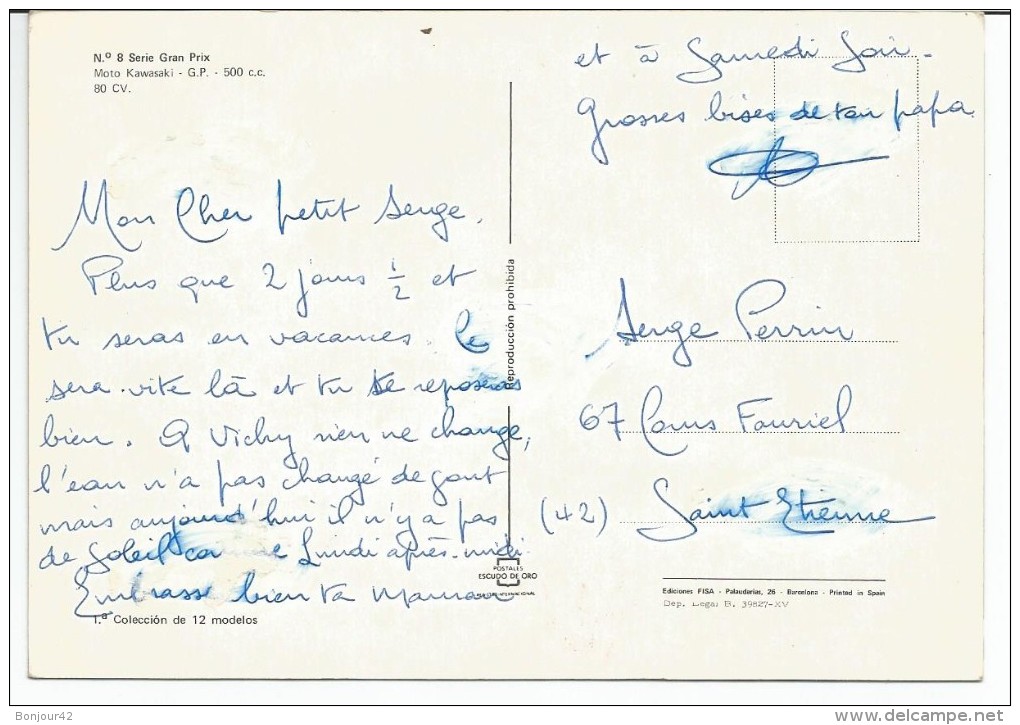 N.º 8 Serie Gran Prix
Moto Kawasaki - G.P. - 500 c.c.
80 CV.
Mon Cher petit Serge,
Plus que 2 jours ½ et
tu seras en vacances. Ce
sera vite là et tu te reposeras
bien. A Vichy rien ne change,
l'eau n'a pas changé de gout
mais aujourd'hui il n'y a pas
de soleil comme Lundi après-midi.
Embrasse bien ta Maman
et à Samedi soir -
Grosses bises de ton papa
1.ª Colección de 12 modelos
reproducción prohibida
POSTALES
ESCUDO DE ORO
Serge Perrin
67 Cours Fauriel
(42) Saint Etienne
Ediciones FISA - Palaudarias, 26 - Barcelona - Printed in Spain
Dep. Legal B. 39827-XV
Bonjour42
www.delcampe.net